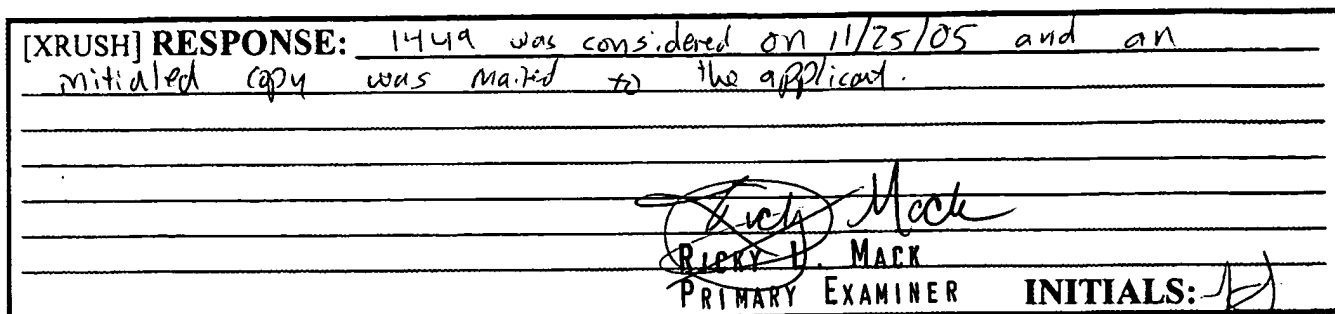 [XRUSH] RESPONSE: 1449 was considered on 11/25/05 and an
initialed copy was mailed to the applicant.
Mack
RICKY MACK
PRIMARY EXAMINER INITIALS: